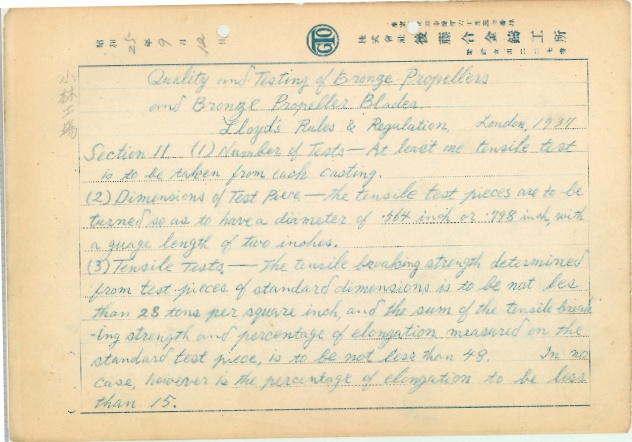 昭和 25 年 9 月 12 日
GTO
株式會社 後藤合金鑄工所
小林工場
Quality and Testing of Bronze Propellers
and Bronze Propeller Blades.
Lloyd's Rules & Regulation, London, 1937
Section 11 (1) Number of Tests — At least one tensile test
is to be taken from each casting.
(2) Dimensions of Test Piece. — The tensile test pieces are to be
turned so as to have a diameter of .564 inch or .798 inch, with
a guage length of two inches.
(3) Tensile Tests, — The tensile breaking strength determined
from test pieces of standard dimensions is to be not less
than 28 tons per square inch, and the sum of the tensile break
-ing strength and percentage of elongation measured on the
standard test piece, is to be not less than 48. In no
case, however is the percentage of elongation to be less
than 15.